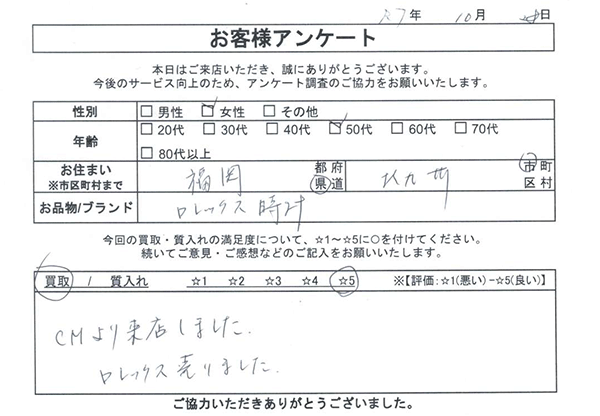 27年 10月 日
お客様アンケート
本日はご来店いただき、誠にありがとうございます。
今後のサービス向上のため、アンケート調査のご協力をお願いいたします。
性別 □ 男性 ☑ 女性 □ その他
年齢 □ 20代 □ 30代 □ 40代 ☑ 50代 □ 60代 □ 70代
□ 80代以上
お住まい ※市区町村まで 福岡 都 府 県 道 北九州 市 町 区 村
お品物/ブランド ロレックス 時計
今回の買取・質入れの満足度について、☆1～☆5に○を付けてください。
続いてご意見・ご感想などのご記入をお願いいたします。
買取 / 質入れ ☆1 ☆2 ☆3 ☆4 ☆5 ※【評価:☆1(悪い)－☆5(良い)】
CMより来店しました.
ロレックス売りました.
ご協力いただきありがとうございました。